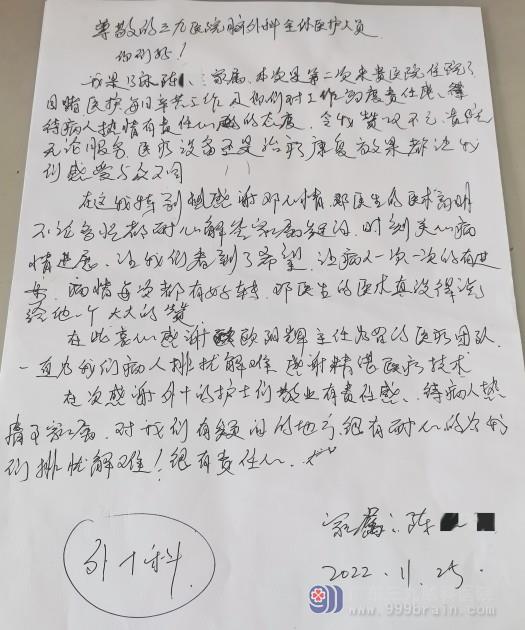 尊敬的三九医院脑外科全体医护人员
你们好！
我是11床陈 家属，本次是第二次来贵医院住院了
目睹医护每日辛苦工作及你们对工作的高度责任感、
待病人热情有责任心的态度，令我赞叹不已，贵院
无论服务、医疗设备还是治疗康复效果都让我
们感受与众不同
在这我特别想感谢邓 医生的医术高明
不论多忙都耐心解答家属疑问，时刻关心病
情进展，让我们看到了希望，让病人一次一次的有进
步，病情每次都有好转，邓医生的医术真没得说
给他一个大大的赞
在此衷心感谢欧阳辉主任为首的医疗团队
一直为我们病人排忧解难 感谢精湛医疗技术
在次感谢外十的护士们敬业有责任感、待病人热
情 家属，对我们有疑问的地方很有耐心的为我
们排忧解难！很有责任心
家属：陈
2022.11.25
外十科
广东三九脑科医院
www.999brain.com